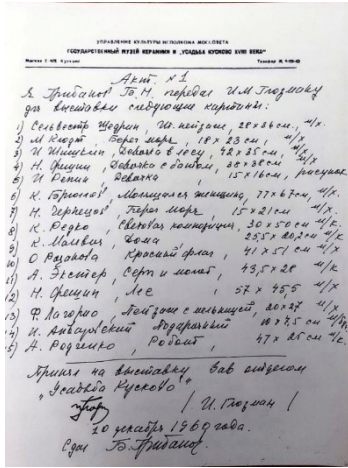 УПРАВЛЕНИЕ КУЛЬТУРЫ ИСПОЛКОМА МОССОВЕТА
ГОСУДАРСТВЕННЫЙ МУЗЕЙ КЕРАМИКИ И „УСАДЬБА КУСКОВО XVIII ВЕКА"
Москва Кусково Телефон
Акт. №1
Я Грибанов Б. Н. передал И.М Глозману
для выставки следующие картины:
1) Сельвестр Щедрин, Ит. пейзаж, 28х36 см. м/х.
2) М Клодт, Берег моря, 18 х 23 см, м/х.
3) И Шишкин, Девочка в лесу, 48 х 35 см, м/х
4) Н. Фешин, Девочка с бантом, 38х38 см м/х.
5) И Репин Девочка, 15х16 см, рисунок
6) К. Брюллов, Молящаяся женщина, 77х67 см, м/х.
7) Н. Чернецов, Берег моря, 15 х 21 см м/х.
8) К. Редко, Световая композиция, 30 х 50 см м/к.
9) К. Малевич Дома 25,5 х 20,2 см м/к
10) О Розанова Красный флаг, 41 х 51 см м/х
11) А. Экстер, Серп и молот, 43,5 х 28 м/к
12) Н. Фешин, Лес 57 х 45,5 м/х
13) Ф. Лагорио, Пейзаж с мельницей, 20х27 м/х
14) И. Айвазовский Подарочный 10 х 7,5 см м/к
15) А. Родченко, Робот, 47 х 25 см м/к.
Принял на выставку Зав отделом
„Усадьба Кусково"
/ И. Глозман /
10 декабря 1969 года.
Сдал Б. Грибанов.